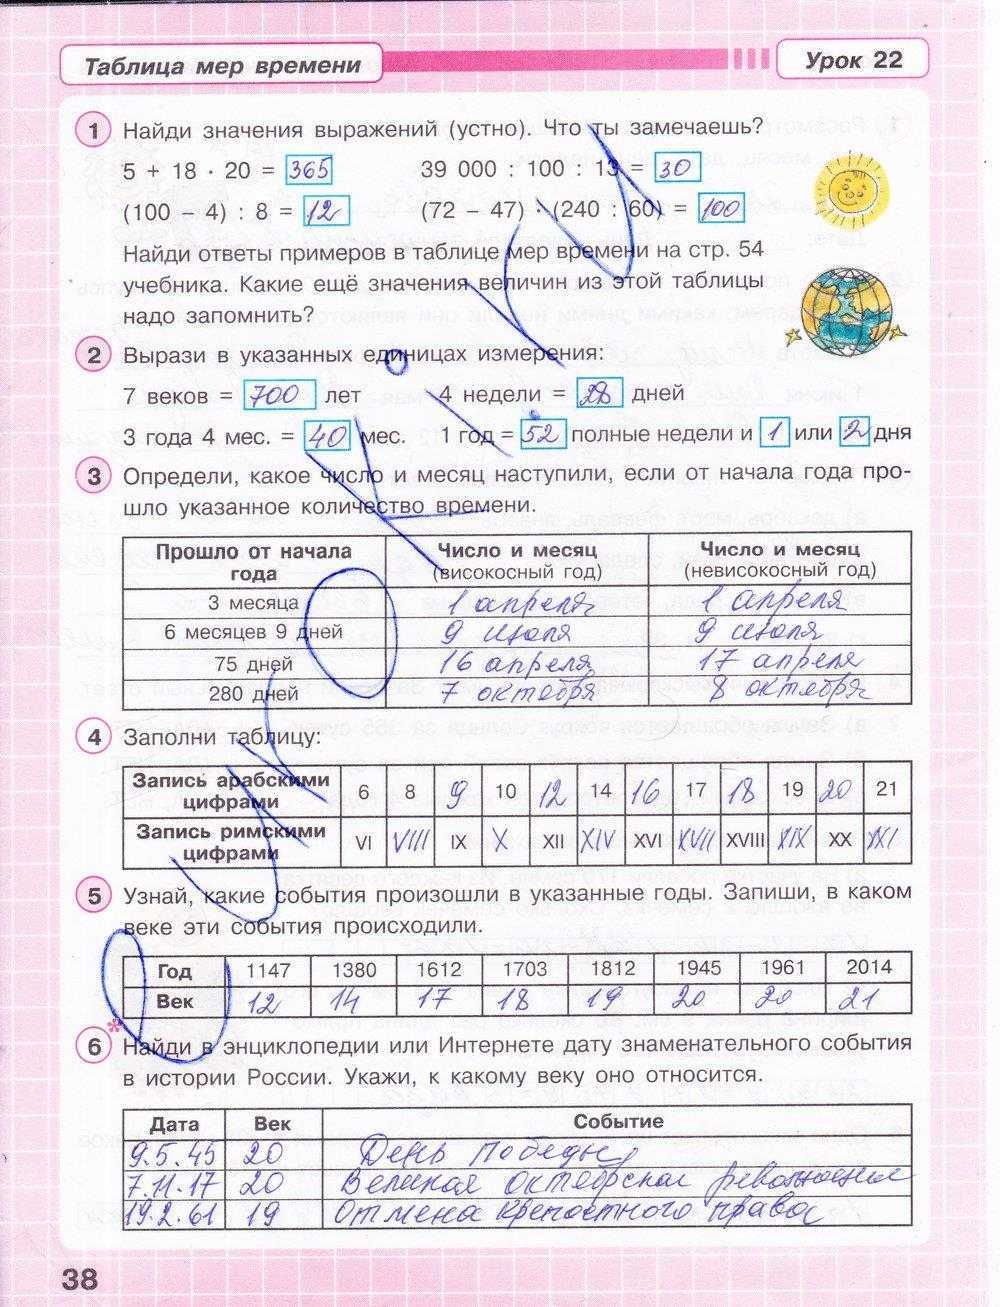 Таблица мер времени
Урок 22
1 Найди значения выражений (устно). Что ты замечаешь?
5 + 18 · 20 = 365
39 000 : 100 : 13 = 30
(100 – 4) : 8 = 12
(72 – 47) · (240 : 60) = 100
Найди ответы примеров в таблице мер времени на стр. 54
учебника. Какие ещё значения величин из этой таблицы
надо запомнить?
2 Вырази в указанных единицах измерения:
7 веков = 700 лет
4 недели = 28 дней
3 года 4 мес. = 40 мес.
1 год = 52 полные недели и 1 или 2 дня
3 Определи, какое число и месяц наступили, если от начала года про-
шло указанное количество времени.
Прошло от начала года
Число и месяц (високосный год)
Число и месяц (невисокосный год)
3 месяца 1 апреля 1 апреля
6 месяцев 9 дней 9 июля 9 июля
75 дней 16 апреля 17 апреля
280 дней 7 октября 8 октября
4 Заполни таблицу:
Запись арабскими цифрами 6 8 9 10 12 14 16 17 18 19 20 21
Запись римскими цифрами VI VIII IX X XII XIV XVI XVII XVIII XIX XX XXI
5 Узнай, какие события произошли в указанные годы. Запиши, в каком
веке эти события происходили.
Год 1147 1380 1612 1703 1812 1945 1961 2014
Век 12 14 17 18 19 20 20 21
6* Найди в энциклопедии или Интернете дату знаменательного события
в истории России. Укажи, к какому веку оно относится.
Дата Век Событие
9.5.45 20 День победы
7.11.17 20 Великая октябрьская революция
19.2.61 19 Отмена крепостного права
38